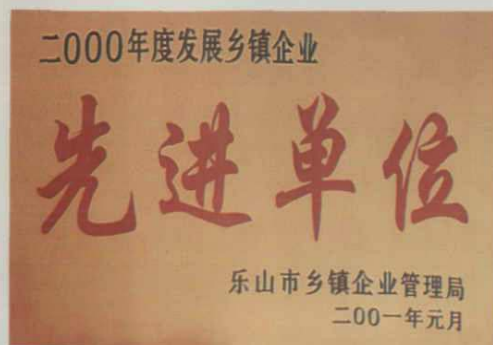 二000年度发展乡镇企业
先进单位
乐山市乡镇企业管理局
二00一年元月